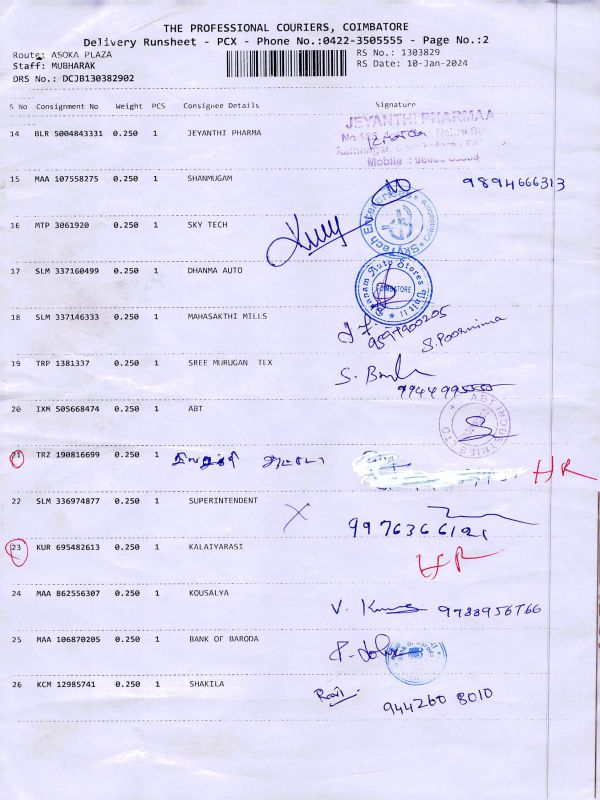 THE PROFESSIONAL COURIERS, COIMBATORE
Delivery Runsheet - PCX - Phone No.:0422-3505555 - Page No.:2
Route: ASOKA PLAZA RS No.: 1303829
Staff: MUBHARAK RS Date: 10-Jan-2024
DRS No.: DCJB130382902
S No Consignment No Weight PCS Consignee Details Signature
14 BLR 5004843331 0.250 1 JEYANTHI PHARMA
JEYANTHI PHARMAA
Mobile :
15 MAA 107558275 0.250 1 SHANMUGAM 9894666313
16 MTP 3061920 0.250 1 SKY TECH
17 SLM 337160499 0.250 1 DHANMA AUTO
COIMBATORE
18 SLM 337146333 0.250 1 MAHASAKTHI MILLS
S. Poornima
19 TRP 1381337 0.250 1 SREE MURUGAN TEX
20 IXM 505668474 0.250 1 ABT
ABT INDUSTRIES LTD
21 TRZ 190816699 0.250 1 HR
22 SLM 336974877 0.250 1 SUPERINTENDENT
23 KUR 695482613 0.250 1 KALAIYARASI HR
24 MAA 862556307 0.250 1 KOUSALYA 9788956766
25 MAA 106870205 0.250 1 BANK OF BARODA
26 KCM 12985741 0.250 1 SHAKILA 944260 8010